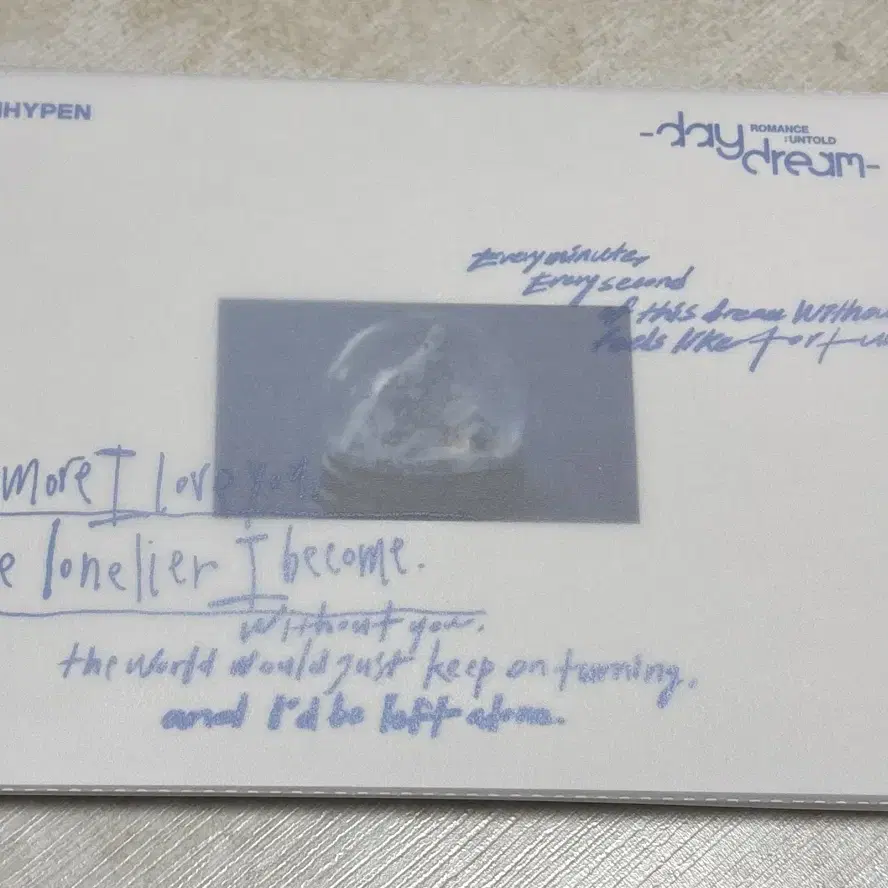 HYPEN
-day dream-
ROMANCE
: UNTOLD
Every minute,
Every second
of this dream witho
feels like tortu
more I love you,
e lonelier I become.
without you.
the world would just keep on turning.
and I'd be left alone.